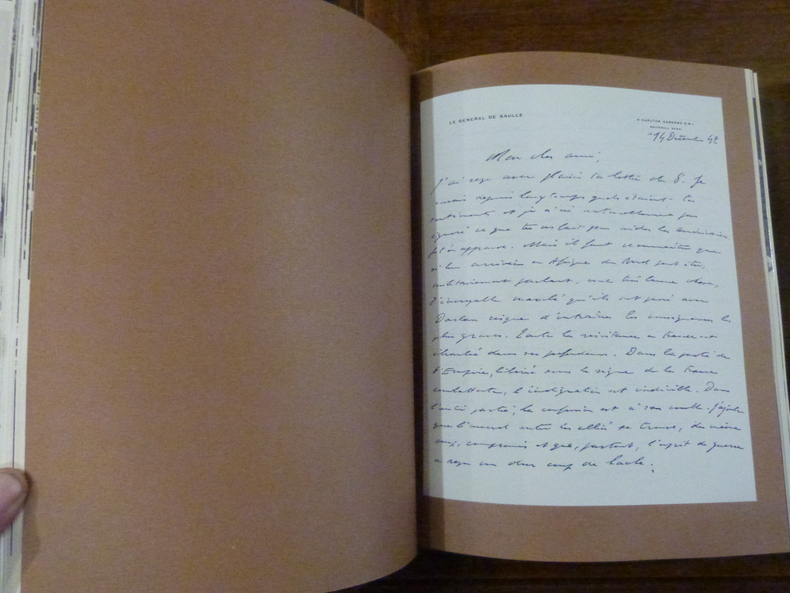 LE GÉNÉRAL DE GAULLE
4 CARLTON GARDENS S.W.1
14 Décembre 42
Mon cher ami,
J'ai reçu avec plaisir ta lettre du 8. Je
savais depuis longtemps quels étaient tes
sentiments et je n'ai naturellement pas
ignoré ce que tu as fait pour aider les
Mais il faut reconnaître que
si leur arrivée en Afrique du Nord peut être,
militairement parlant, une très bonne chose,
l'incroyable marché qu'ils ont passé avec
Darlan risque d'entraîner les conséquences les
plus graves. Toute la résistance en France est
ébranlée dans ses profondeurs. Dans la partie de
l'Empire, libérée sous le signe de la France
combattante, l'indignation est indicible. Dans
l'autre partie, la confusion est à son comble. J'ajoute
que l'accord entre les alliés se trouve, du même
coup, compromis et que, partout, l'esprit de guerre
a reçu un dur coup